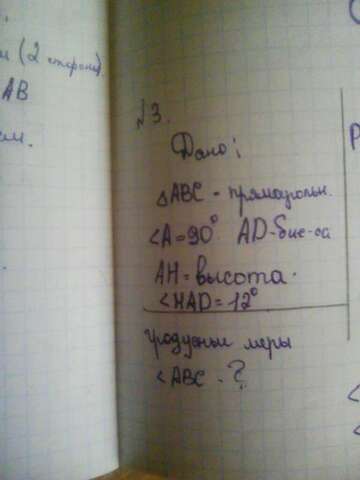 (2 стороны).
AB
см.
№3.
Дано:
△ABC - прямоугольн.
<A=90° AD-бис-са
AH=высота.
<HAD=12°
градусные меры
<ABC - ?